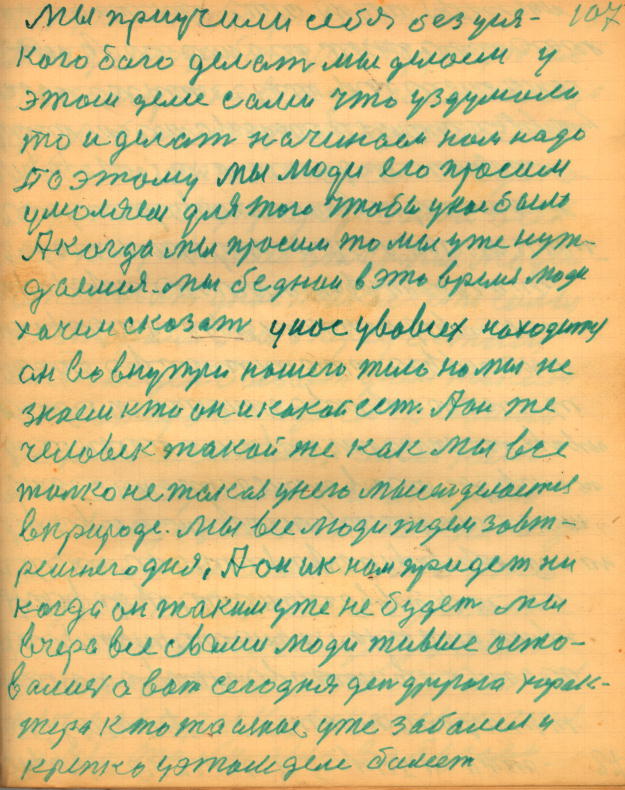 107
Мы приучили себя без уся-
кого баго делат мы делаем у
этом деле сами что уздумали
то и делат начинаем нам надо
Поэтому мы люди его просим
умоляем для того чтобы у нас было
А когда мы просим то мы уже нуж-
даемся. мы беднаи в это время люди
хочем сказат у нас у во всех находитца
он во внутри нашего тело но мы не
знаем кто он и какой ест. А он же
человек такой же как мы все
толко не такая у него мысл делается
в природе. Мы все люди ждем завт-
решнего дня, А он ик нам придет ни
когда он таким уже не будет мы
вчера все с вами люди живые оста-
валися а вот сегодня ден другога харак-
тера кто то с нас уже заболел и
крепко у этом деле болеет